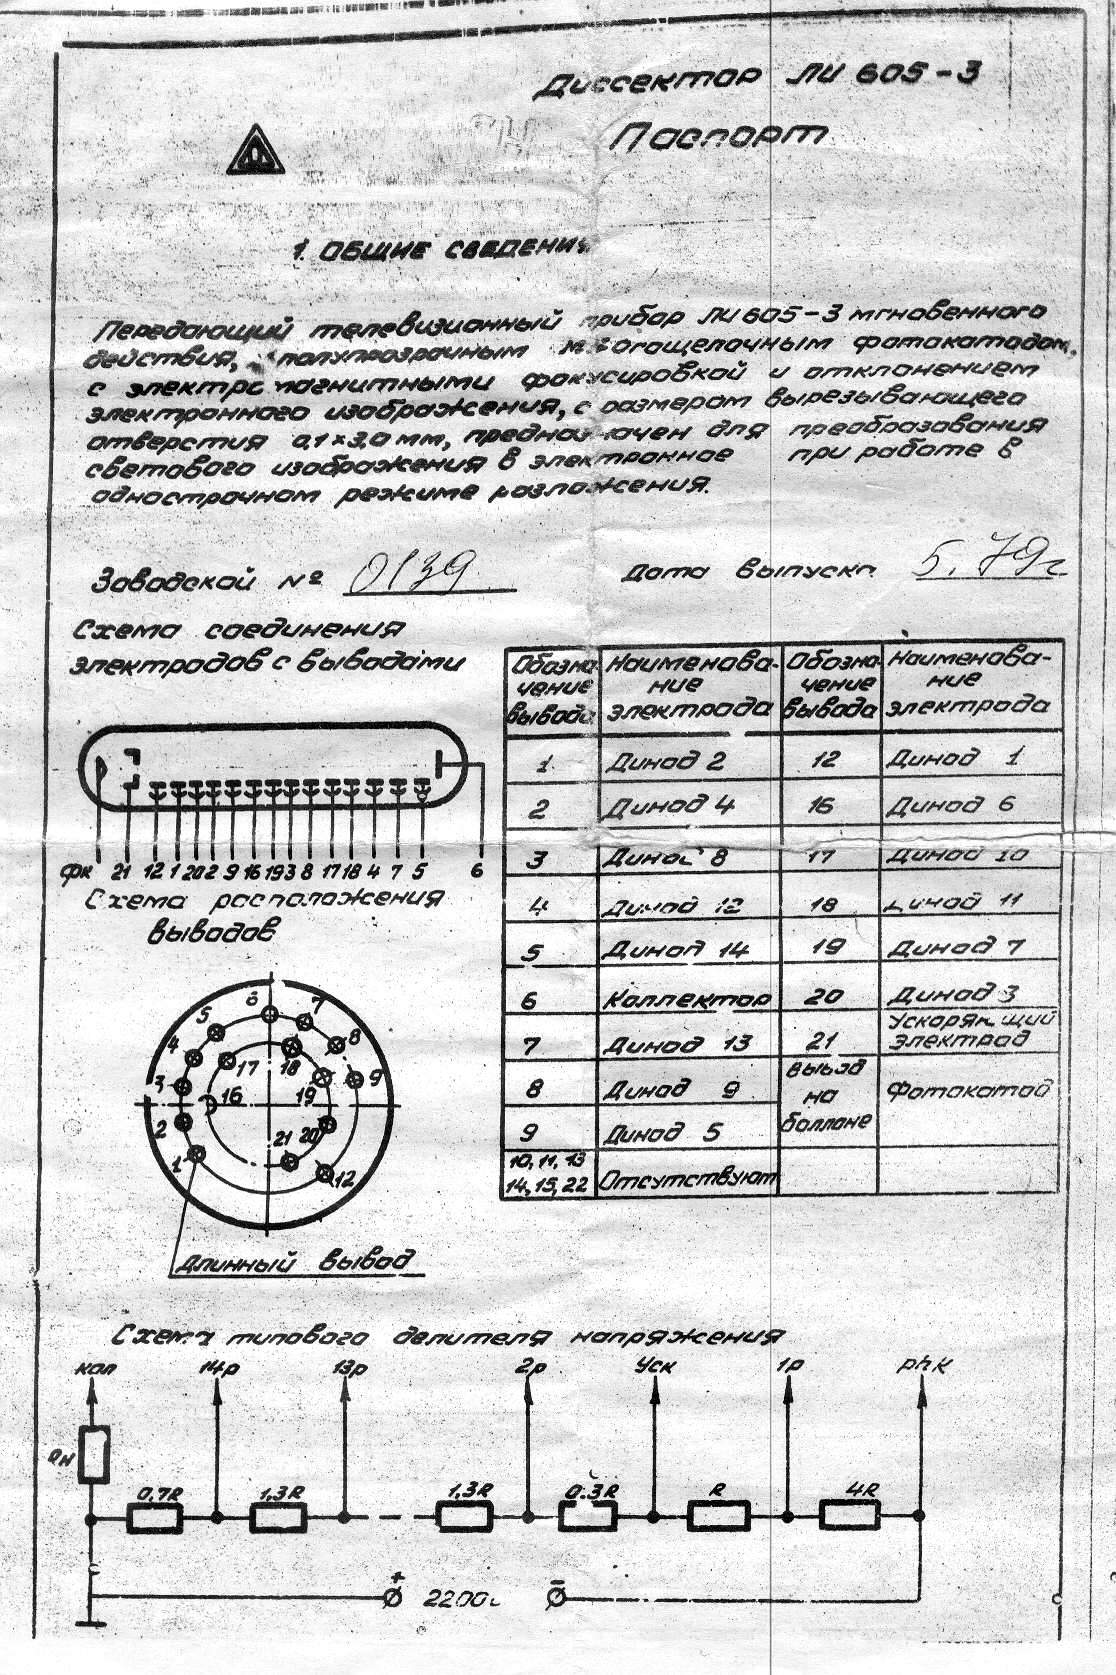 Диссектор ЛИ 605-3
Паспорт
1. ОБЩИЕ СВЕДЕНИЯ
Передающий телевизионный прибор ЛИ 605-3 мгновенного
действия, с полупрозрачным многощелочным фотокатодом,
с электромагнитными фокусировкой и отклонением
электронного изображения, с размером вырезывающего
отверстия 0,1×3,0 мм, предназначен для преобразования
светового изображения в электронное при работе в
однострочном режиме разложения.
Заводской № 0139
Дата выпуска 5.79г
Схема соединения
электродов с выводами
ФК 21 12 1 20 2 9 16 19 3 8 17 18 4 7 5 6
Схема расположения
выводов
1 2 3 4 5 6 7 8 9 12 16 17 18 19 20 21
Длинный вывод
Обозначение вывода Наименование электрода Обозначение вывода Наименование электрода
1 Динод 2 12 Динод 1
2 Динод 4 16 Динод 6
3 Динод 8 17 Динод 10
4 Динод 12 18 Динод 11
5 Динод 14 19 Динод 7
6 Коллектор 20 Динод 3
7 Динод 13 21 Ускоряющий электрод
8 Динод 9 вывод на баллоне Фотокатод
9 Динод 5
10, 11, 13
14, 15, 22 Отсутствуют
Схема типового делителя напряжения
кол 14р 13р 2р Уск 1р phк
Rн 0,7R 1,3R 1,3R 0.3R R 4R
+ 2200 −